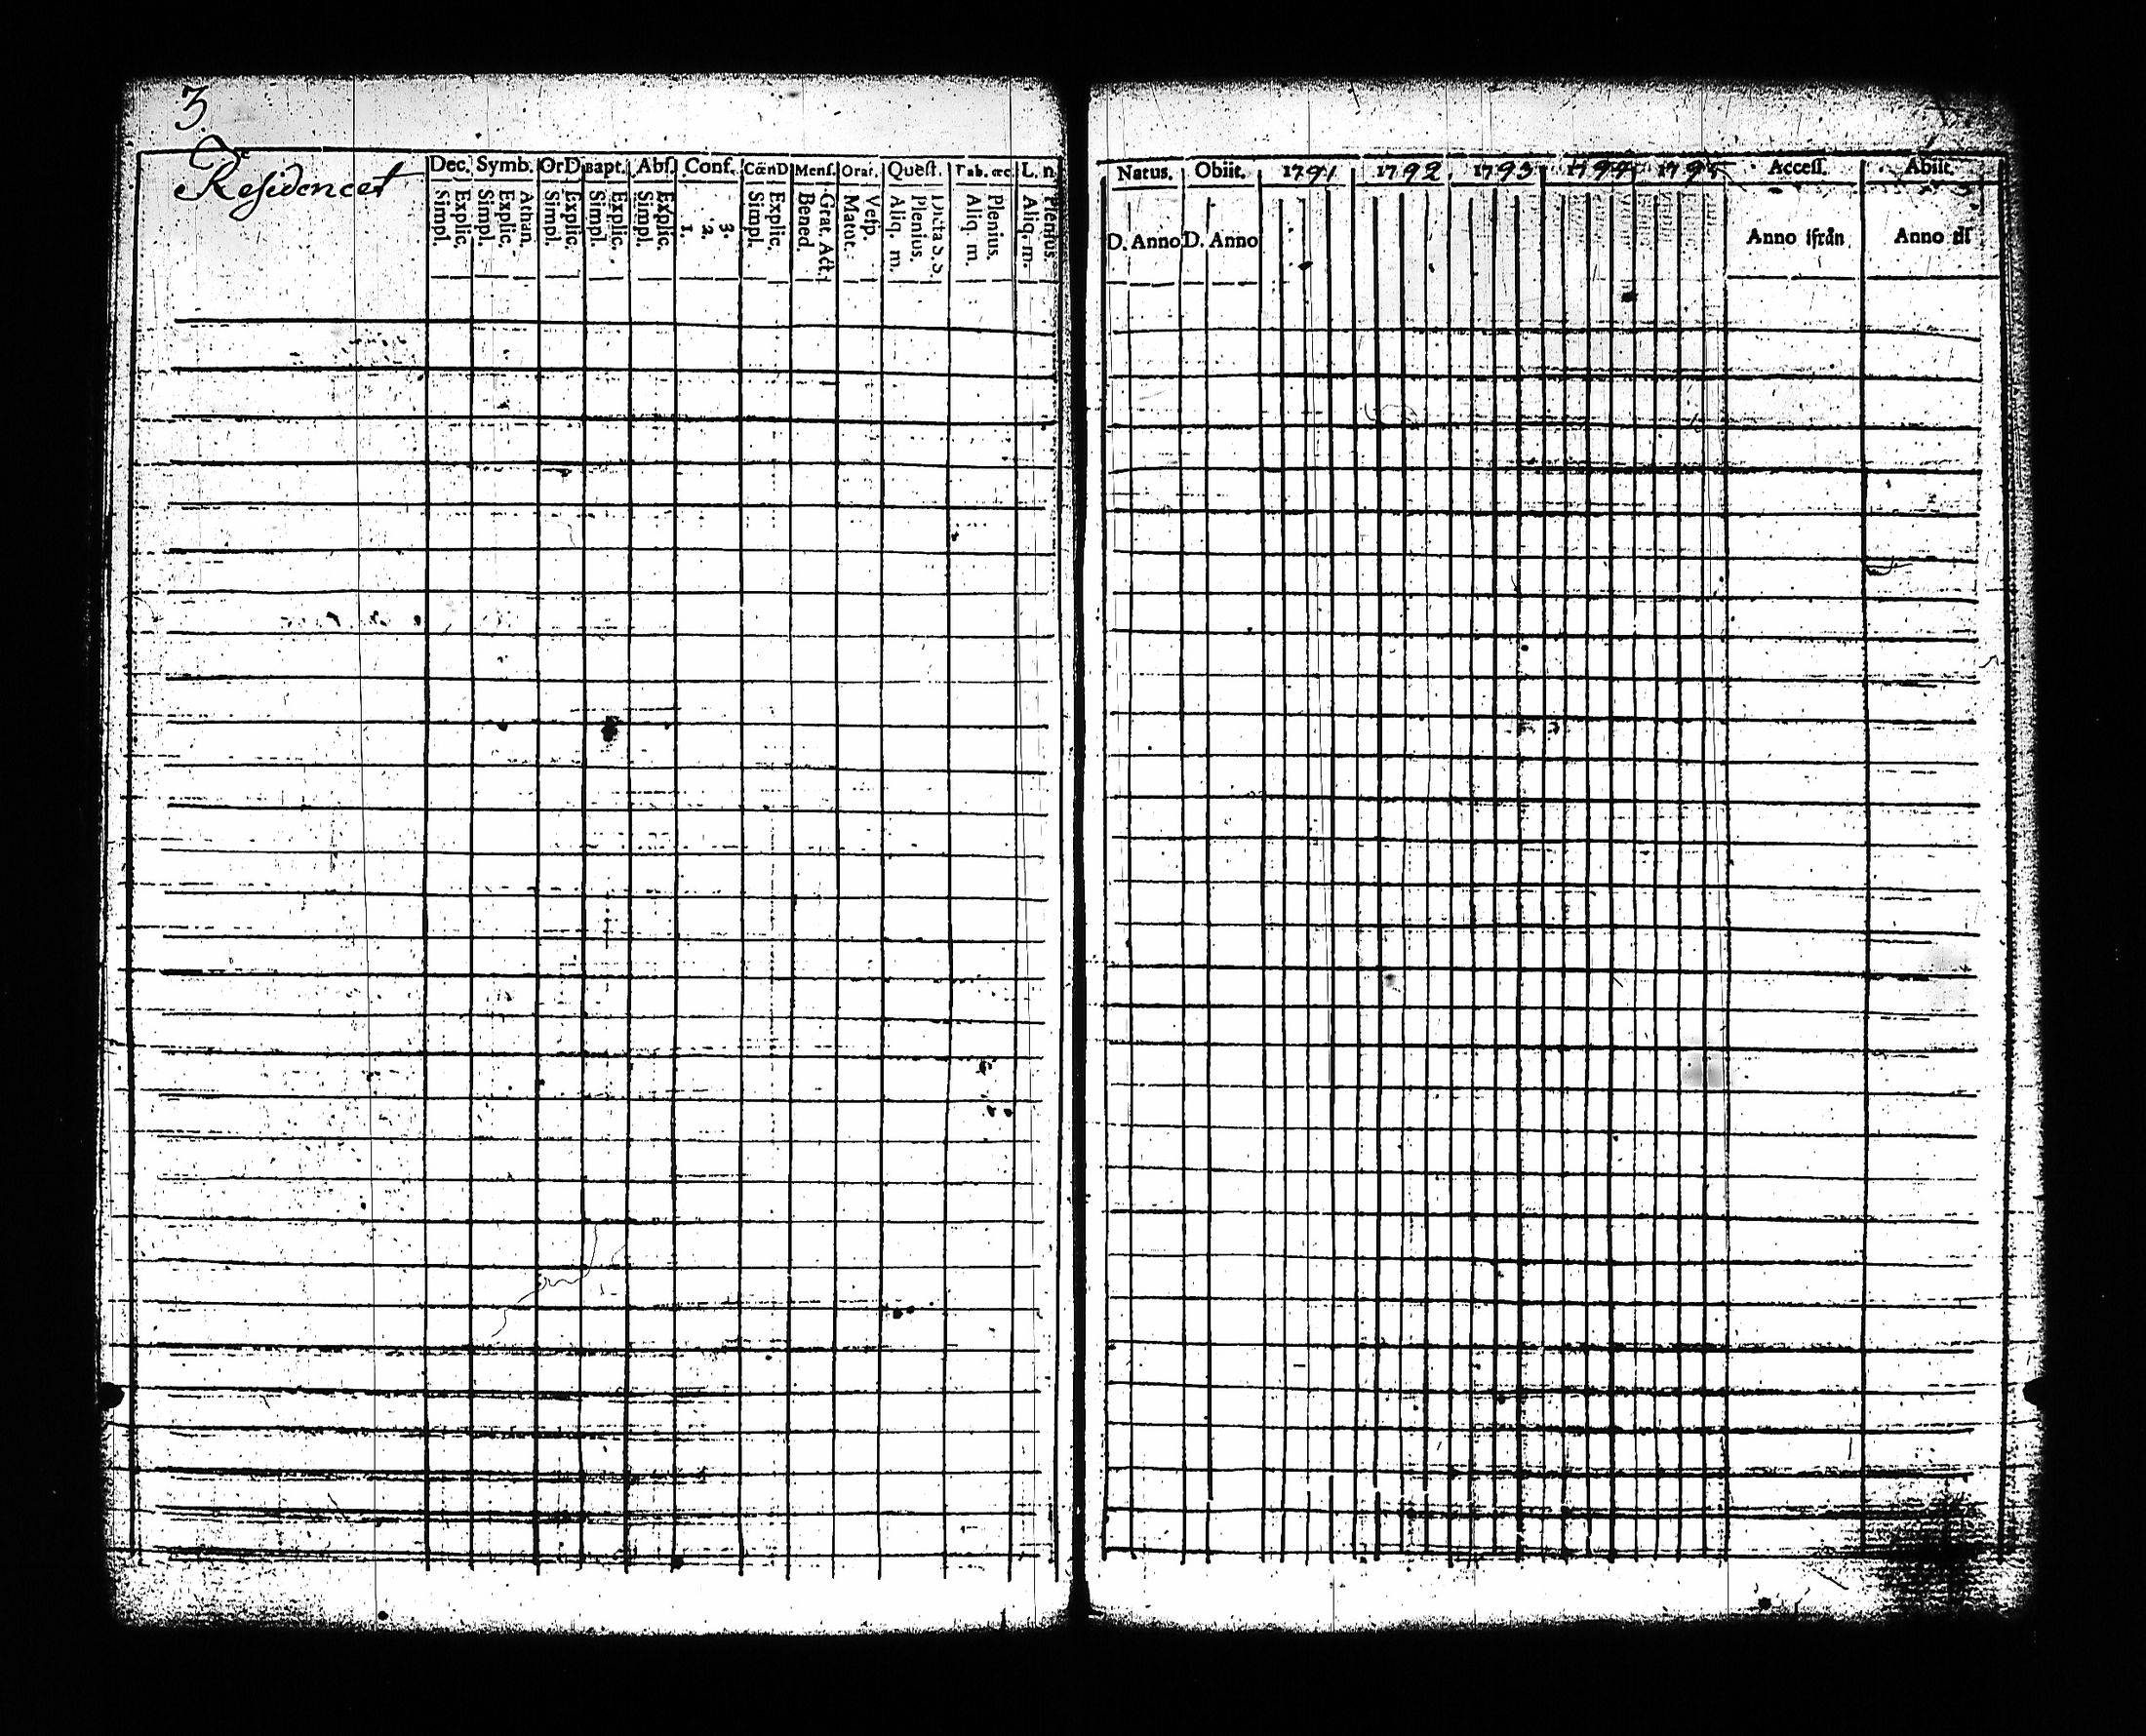 3
Residencet
Dec. Symb. OrD Bapt. Abs. Conf. CœnD Menſ. Orat. Queſt. Tab. œc. L. n.
Simpl. Explic. Simpl. Explic. Athan. Simpl. Explic. Simpl. Explic. Simpl. Explic. 1. 2. 3. Simpl. Explic. Bened. Grat. Act. Matut. Veſp. Aliq. m. Plenius. Dicta S. S. Aliq. m. Plenius. Aliq. m. Plenius.
Natus. Obiit. 1791 1792. 1793 1794 1795 Acceſſ. Abiit.
D. Anno D. Anno Anno ifrån Anno til